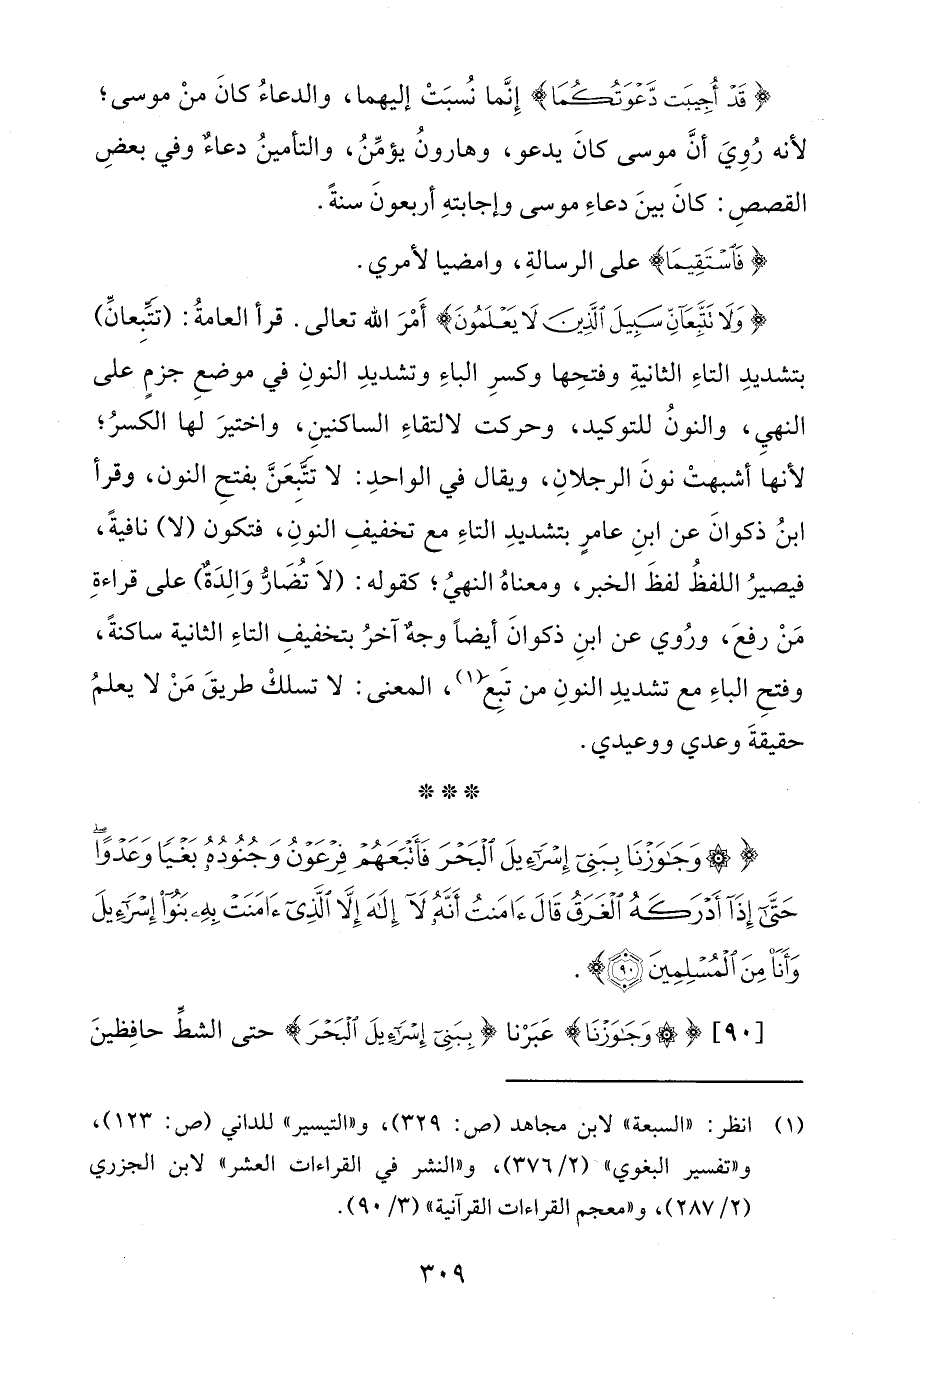 ﴿ قَدْ أُجِيبَت دَّعْوَتُكُمَا﴾ إِنَّما نُسبَتْ إليهما، والدعاءُ كانَ منْ موسى؛
لأنه رُوِيَ أنَّ موسى كانَ يدعو، وهارونُ يؤمِّنُ، والتأمينُ دعاءٌ وفي بعضِ
القصصِ: كانَ بينَ دعاءِ موسى وإجابتهِ أربعونَ سنةً.
﴿ فَٱسْتَقِيمَا﴾ على الرسالةِ، وامضيا لأمري.
﴿ وَلَا نَتَّبِعَآنِّ سَبِيلَ ٱلَّذِينَ لَا يَعْلَمُونَ﴾ أَمْرَ الله تعالى. قرأ العامةُ: (تتَّبِعانِّ)
بتشديدِ التاءِ الثانيةِ وفتحِها وكسرِ الباءِ وتشديدِ النونِ في موضعِ جزمٍ على
النهيِ، والنونُ للتوكيد، وحركت لالتقاءِ الساكنينِ، واختيرَ لها الكسرُ؛
لأنها أشبهتْ نونَ الرجلانِ، ويقال في الواحدِ: لا تَتَّبِعَنَّ بفتحِ النون، وقرأ
ابنُ ذكوانَ عن ابنِ عامرٍ بتشديدِ التاءِ مع تخفيفِ النونِ، فتكون (لا) نافيةً،
فيصيرُ اللفظُ لفظَ الخبر، ومعناهُ النهيُ؛ كقوله: (لاَ تُضَارُّ وَالِدَةٌ) على قراءةِ
مَنْ رفعَ، ورُوي عن ابنِ ذكوانَ أيضاً وجهٌ آخرُ بتخفيفِ التاءِ الثانية ساكنةً،
وفتحِ الباءِ مع تشديدِ النونِ من تَبِعَ(١)، المعنى: لا تسلكْ طريقَ مَنْ لا يعلمُ
حقيقةَ وعدي ووعيدي.
***
﴿ ۞ وَجَٰوَزْنَا بِبَنِىٓ إِسْرَٰٓءِيلَ ٱلْبَحْرَ فَأَتْبَعَهُمْ فِرْعَوْنُ وَجُنُودُهُۥ بَغْيًا وَعَدْوًاۖ
حَتَّىٰٓ إِذَآ أَدْرَكَهُ ٱلْغَرَقُ قَالَ ءَامَنتُ أَنَّهُۥ لَآ إِلَٰهَ إِلَّا ٱلَّذِىٓ ءَامَنَتْ بِهِۦ بَنُوٓا۟ إِسْرَٰٓءِيلَ
وَأَنَا۠ مِنَ ٱلْمُسْلِمِينَ ۝٩٠﴾.
[٩٠] ﴿ ۞ وَجَٰوَزْنَا﴾ عَبَرْنا ﴿ بِبَنِىٓ إِسْرَٰٓءِيلَ ٱلْبَحْرَ﴾ حتى الشطِّ حافِظينَ
(١) انظر: «السبعة» لابن مجاهد (ص: ٣٢٩)، و«التيسير» للداني (ص: ١٢٣)،
و«تفسير البغوي» (٢/ ٣٧٦)، و«النشر في القراءات العشر» لابن الجزري
(٢/ ٢٨٧)، و«معجم القراءات القرآنية» (٣/ ٩٠).
٣٠٩